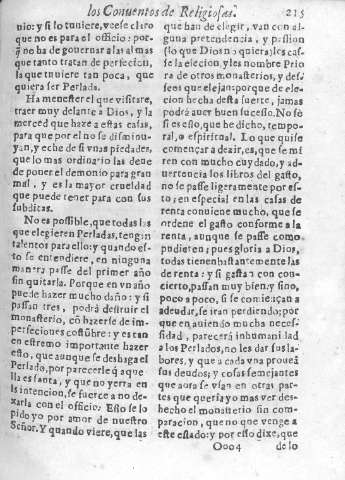 los Conuentos de Religiosas. 215
nio: y si lo tuuiere, veese claro
que no es para el officio: por-
q̃ no ha de gouernar a las almas
que tanto tratan de perfecion,
la que tuuiere tan poca, que
quiera ser Perlada.
Ha menester el que visitare,
traer muy delante a Dios, y la
merced que haze a estas casas,
para que por el no se disminu-
yan, y eche de si vnas piedades,
que lo mas ordinario las deue
de poner el demonio para gran
mal, y es la mayor crueldad
que puede tener para con sus
subditas.
No es possible, que todas las
que eligieren Perladas, tengan
talentos para ello: y quando es-
to se entendiere, en ninguna
manera passe del primer año
sin quitarla. Porque en vn año
puede hazer mucho daño: y si
passan tres, podrá destruir el
monasterio, cõ hazerse de im-
perfeciones costũbre: y es tan
en estremo importante hazer
esto, que aunque se deshaga el
Perlado, por parecerle q̃ aque
lla es santa, y que no yerra en
la intencion, se fuerce a no de-
xarla con el officio. Esto se lo
pido yo por amor de nuestro
Señor. Y quando viere, que las
que han de elegir, van con al-
guna pretendencia, y passion
(lo que Dios no quiera) les cas-
se la elecion, y les nombre Prio
ra de otros monasterios, y des-
tos que elijan: porque de elec-
cion hecha desta suerte, jamas
podrá auer buen sucesso. No sè
si es esto, que he dicho, tempo-
ral, o espiritual. Lo que quise
començar a dezir, es, que se mi
ren con mucho cuydado, y ad-
uertencia los libros del gasto,
no se passe ligeramente por es-
to: en especial en las casas de
renta conuiene mucho, que se
ordene el gasto conforme a la
renta, aunque se passe como
pudieren; pues gloria a Dios,
todas tienen bastantemente las
de renta: y si gastan con con-
cierto, passan muy bien: y sino,
poco a poco, si se comiençan a
adeudar, se iran perdiendo; por
que en auiendo mucha neces-
sidad, parecerá inhumanidad
a los Perlados, no les dar sus la-
bores, y que a cada vna prouea
sus deudos; y cosas semejantes
que aora se vsan en otras par-
tes que querria yo mas ver des-
hecho el monasterio sin com-
paracion, que no que venga a
este estado: y por esto dixe, que
Ooo4 de lo